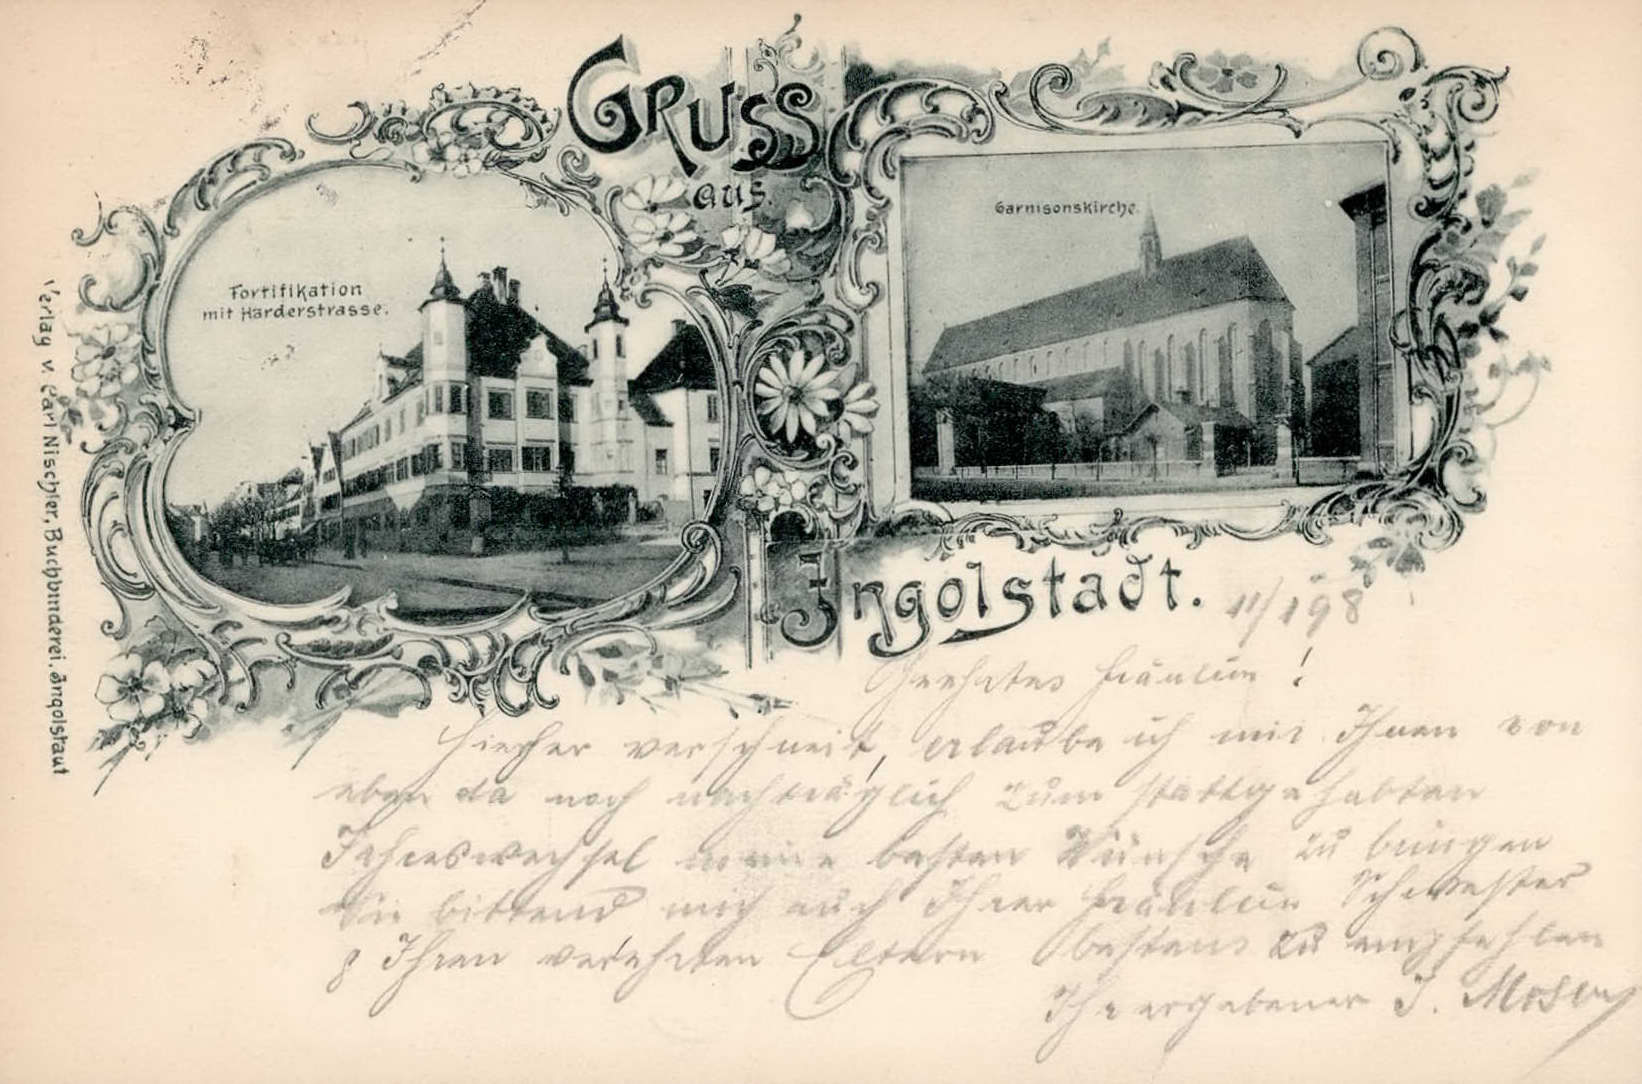 Gruss
aus
Ingolstadt.
Fortifikation
mit Harderstrasse.
Garnisonskirche.
Verlag v. Carl Nischler, Buchbinderei. Ingolstadt
11/1 98
Geehrtes Fräulein!
Hieher verschneit, erlaube ich mir Ihnen von
eben da noch nachträglich zum stattgehabten
Jahreswechsel meine besten Wünsche zu bringen
Sie bittend mich auch Ihrer Fräulein Schwester
& Ihren verehrten Eltern bestens zu empfehlen
Ihr ergebener J.